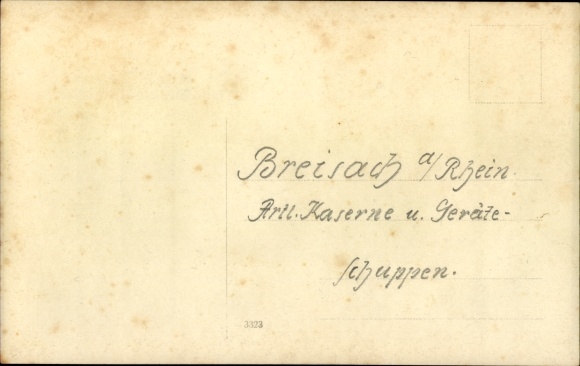 Breisach a/Rhein.
Artl. Kaserne u. Geräte-
schuppen.
3323